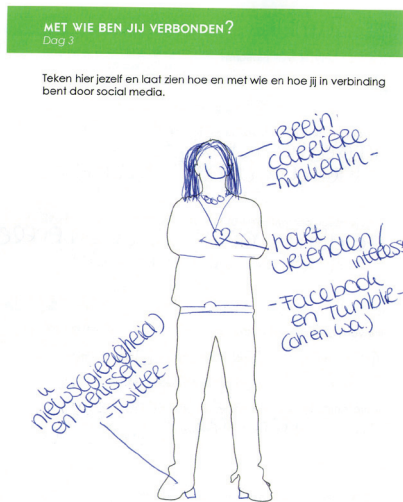 MET WIE BEN JIJ VERBONDEN?
Dag 3
Teken hier jezelf en laat zien hoe en met wie en hoe jij in verbinding
bent door social media.
BREIN:
CARRIÈRE
-LinkedIn-
hart
vrienden/
interess
-Facebook
en Tumblr-
(oh en wa.)
nieuwsgierigheid)
en
-Twitter-